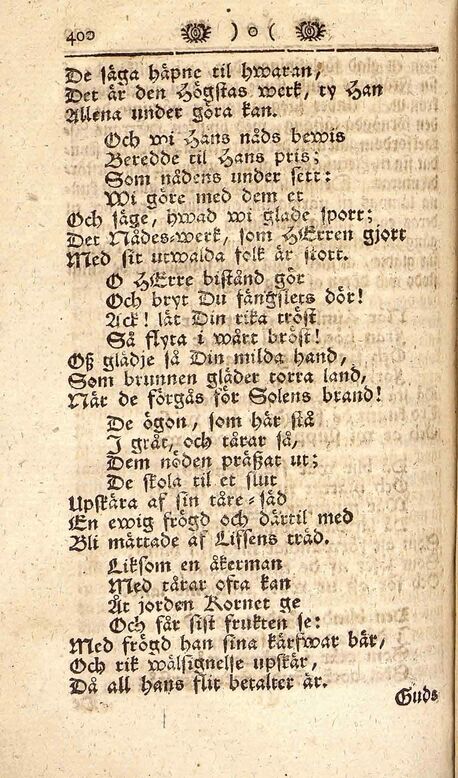 400 ) o (
De säga häpne til hwaran,
Det är den Högstas werk, ty Han
Allena under göra kan.
Och wi Hans nåds bewis
Beredde til Hans pris;
Som nådens under sett:
Wi göre med dem et
Och säge, hwad wi glade sport;
Det Nådes-werk, som HErren gjort
Med sit utwalda folk är stort.
O HErre bistånd gör
Och bryt Du fängslets dör!
Ack! låt Din rika tröst
Så flyta i wårt bröst!
Oß glädje så Din milda hand,
Som brunnen gläder torra land,
När de förgås för Solens brand!
De ögon, som här stå
I gråt, och tårar så,
Dem nöden präßat ut;
De skola til et slut
Upskära af sin tåre-säd
En ewig frögd och därtil med
Bli mättade af Lifsens träd.
Liksom en åkerman
Med tårar ofta kan
Åt jorden Kornet ge
Och får sist frukten se:
Med frögd han sina kärfwar bär,
Och rik wälsignelse upskär,
Då all hans flit betalter är.
Guds